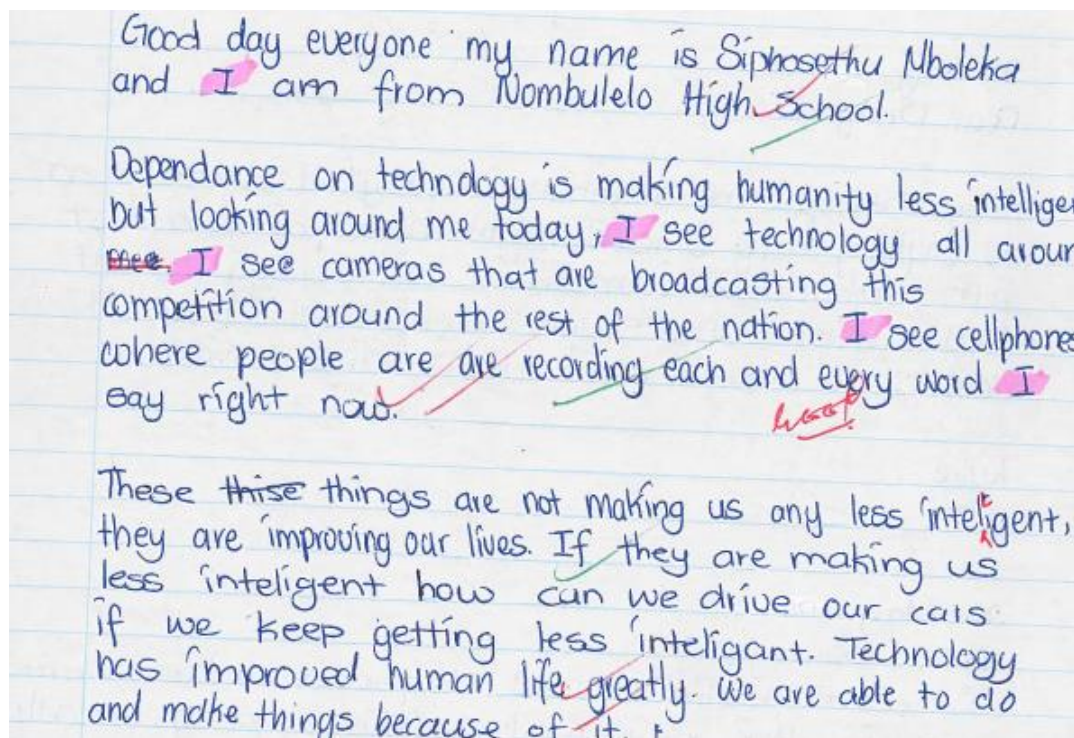 Good day everyone my name is Siphosethu Mboleka
and I am from Nombulelo High School.
Dependance on technology is making humanity less intellige
but looking around me today, I see technology all aroun
me. I see cameras that are broadcasting this
competition around the rest of the nation. I see cellphones
where people are are recording each and every word I
say right now.
These thise things are not making us any less inteligent,
they are improving our lives. If they are making us
less inteligent how can we drive our cars
if we keep getting less inteligant. Technology
has improved human life greatly. We are able to do
and make things because of it.